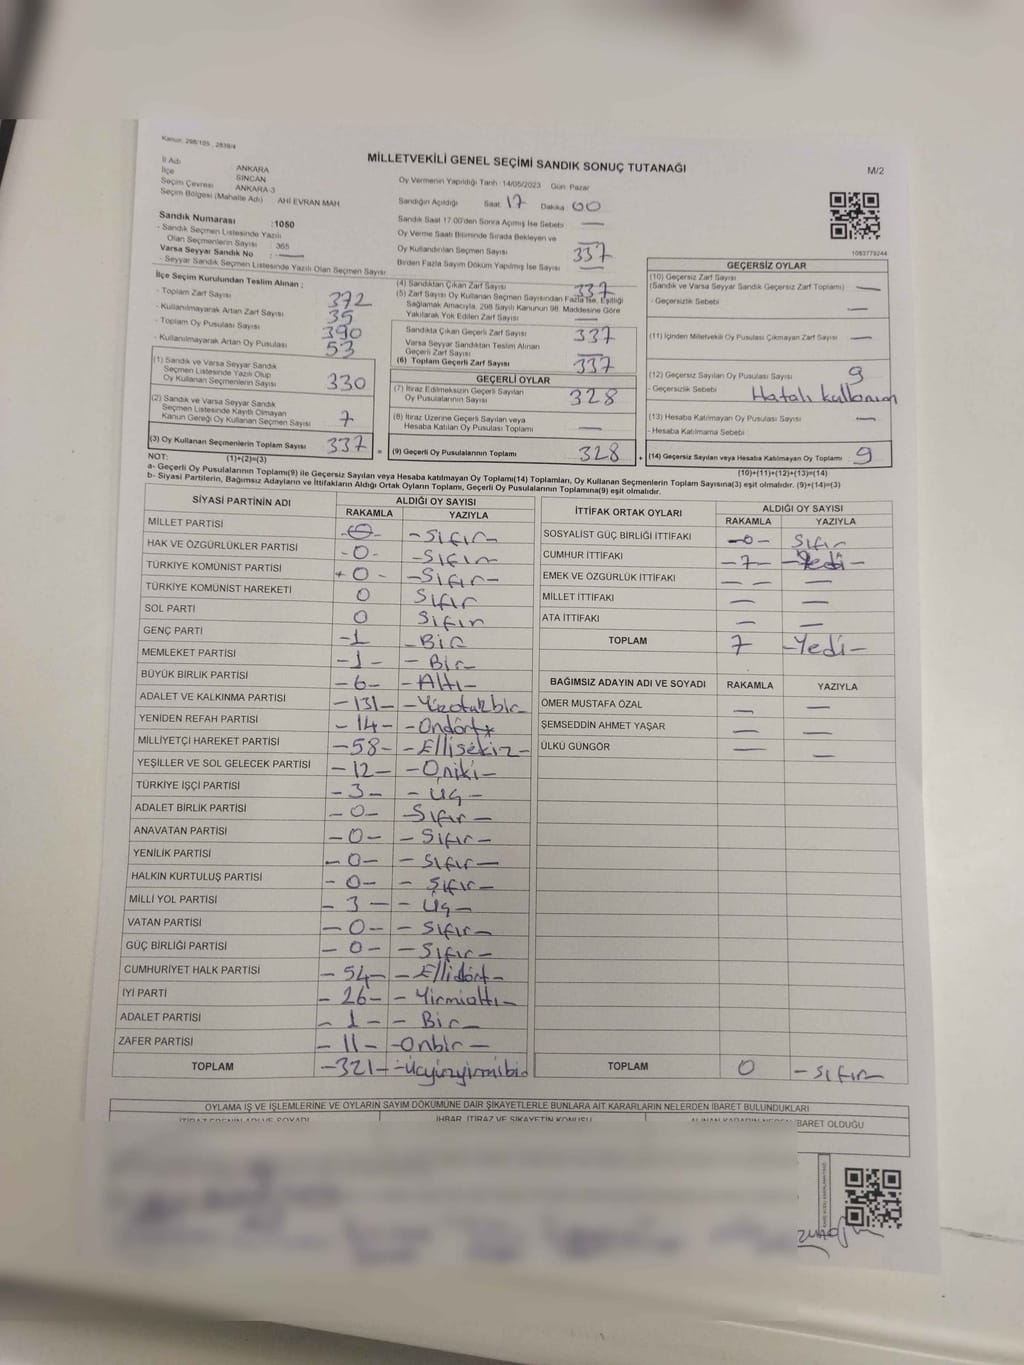 Kanun: 298/105, 2839/4
MİLLETVEKİLİ GENEL SEÇİMİ SANDIK SONUÇ TUTANAĞI
M/2
İl Adı : ANKARA
İlçe : SİNCAN
Seçim Çevresi : ANKARA-3
Seçim Bölgesi (Mahalle Adı) AHİ EVRAN MAH
Sandık Numarası : 1050
- Sandık Seçmen Listesinde Yazılı
Olan Seçmenlerin Sayısı : 365
Varsa Seyyar Sandık No : —
- Seyyar Sandık Seçmen Listesinde Yazılı Olan Seçmen Sayısı
Oy Vermenin Yapıldığı Tarih :14/05/2023 Gün: Pazar
Sandığın Açıldığı Saat: 17 Dakika: 00
Sandık Saat 17:00'den Sonra Açılmış İse Sebebi —
Oy Verme Saati Bitiminde Sırada Bekleyen ve
Oy Kullandırılan Seçmen Sayısı 337
Birden Fazla Sayım Döküm Yapılmış İse Sayısı —
1083779244
İlçe Seçim Kurulundan Teslim Alınan ;
- Toplam Zarf Sayısı 372
- Kullanılmayarak Artan Zarf Sayısı 35
- Toplam Oy Pusulası Sayısı 390
- Kullanılmayarak Artan Oy Pusulası 53
(1) Sandık ve Varsa Seyyar Sandık
Seçmen Listesinde Yazılı Olup
Oy Kullanan Seçmenlerin Sayısı 330
(2) Sandık ve Varsa Seyyar Sandık
Seçmen Listesinde Kayıtlı Olmayan
Kanun Gereği Oy Kullanan Seçmen Sayısı 7
(3) Oy Kullanan Seçmenlerin Toplam Sayısı 337
(4) Sandıktan Çıkan Zarf Sayısı 337
(5) Zarf Sayısı Oy Kullanan Seçmen Sayısından Fazla İse, Eşitliği
Sağlamak Amacıyla, 298 Sayılı Kanunun 98. Maddesine Göre
Yakılarak Yok Edilen Zarf Sayısı —
Sandıkta Çıkan Geçerli Zarf Sayısı 337
Varsa Seyyar Sandıktan Teslim Alınan
Geçerli Zarf Sayısı —
(6) Toplam Geçerli Zarf Sayısı 337
GEÇERLİ OYLAR
(7) İtiraz Edilmeksizin Geçerli Sayılan
Oy Pusulalarının Sayısı 328
(8) İtiraz Üzerine Geçerli Sayılan veya
Hesaba Katılan Oy Pusulası Toplamı —
= (9) Geçerli Oy Pusulalarının Toplamı 328
GEÇERSİZ OYLAR
(10) Geçersiz Zarf Sayısı
(Sandık ve Varsa Seyyar Sandık Geçersiz Zarf Toplamı) —
- Geçersizlik Sebebi —
(11) İçinden Milletvekili Oy Pusulası Çıkmayan Zarf Sayısı —
(12) Geçersiz Sayılan Oy Pusulası Sayısı 9
- Geçersizlik Sebebi Hatalı kullanım
(13) Hesaba Katılmayan Oy Pusulası Sayısı —
- Hesaba Katılmama Sebebi
+ (14) Geçersiz Sayılan veya Hesaba Katılmayan Oy Toplamı 9
NOT: (1)+(2)=(3)
(10)+(11)+(12)+(13)=(14)
a- Geçerli Oy Pusulalarının Toplamı(9) ile Geçersiz Sayılan veya Hesaba katılmayan Oy Toplamı(14) Toplamları, Oy Kullanan Seçmenlerin Toplam Sayısına(3) eşit olmalıdır. (9)+(14)=(3)
b- Siyasi Partilerin, Bağımsız Adayların ve İttifakların Aldığı Ortak Oyların Toplamı, Geçerli Oy Pusulalarının Toplamına(9) eşit olmalıdır.
SİYASİ PARTİNİN ADI ALDIĞI OY SAYISI
RAKAMLA YAZIYLA
MİLLET PARTİSİ -0- -Sıfır-
HAK VE ÖZGÜRLÜKLER PARTİSİ -0- -Sıfır
TÜRKİYE KOMÜNİST PARTİSİ + 0 - -Sıfır-
TÜRKİYE KOMÜNİST HAREKETİ 0 Sıfır
SOL PARTİ 0 Sıfır
GENÇ PARTİ -1 -Bir
MEMLEKET PARTİSİ -1- -Bir
BÜYÜK BİRLİK PARTİSİ -6- -Altı-
ADALET VE KALKINMA PARTİSİ -131- -Yüzotuzbir
YENİDEN REFAH PARTİSİ -14- -Ondört
MİLLİYETÇİ HAREKET PARTİSİ -58- -Ellisekiz-
YEŞİLLER VE SOL GELECEK PARTİSİ -12- -Oniki-
TÜRKİYE İŞÇİ PARTİSİ -3- -Üç-
ADALET BİRLİK PARTİSİ -0- Sıfır-
ANAVATAN PARTİSİ -0- -Sıfır-
YENİLİK PARTİSİ -0- -Sıfır-
HALKIN KURTULUŞ PARTİSİ -0- -Sıfır-
MİLLİ YOL PARTİSİ -3- -Üç-
VATAN PARTİSİ -0- -Sıfır-
GÜÇ BİRLİĞİ PARTİSİ -0- -Sıfır-
CUMHURİYET HALK PARTİSİ -54- -Ellidört-
İYİ PARTİ -26- -Yirmialtı-
ADALET PARTİSİ -1- -Bir-
ZAFER PARTİSİ -11- -Onbir-
TOPLAM -321- -Üçyüzyirmibir
İTTİFAK ORTAK OYLARI ALDIĞI OY SAYISI
RAKAMLA YAZIYLA
SOSYALİST GÜÇ BİRLİĞİ İTTİFAKI -0- Sıfır
CUMHUR İTTİFAKI -7- -Yedi-
EMEK VE ÖZGÜRLÜK İTTİFAKI — —
MİLLET İTTİFAKI — —
ATA İTTİFAKI — —
TOPLAM 7 -Yedi-
BAĞIMSIZ ADAYIN ADI VE SOYADI RAKAMLA YAZIYLA
ÖMER MUSTAFA ÖZAL — —
ŞEMSEDDİN AHMET YAŞAR — —
ÜLKÜ GÜNGÖR — —
TOPLAM 0 -Sıfır
OYLAMA İŞ VE İŞLEMLERİNE VE OYLARIN SAYIM DÖKÜMÜNE DAİR ŞİKAYETLERLE BUNLARA AİT KARARLARIN NELERDEN İBARET BULUNDUKLARI
İHBAR, İTİRAZ VE ŞİKAYETİN KONUSU
BARET OLDUĞU